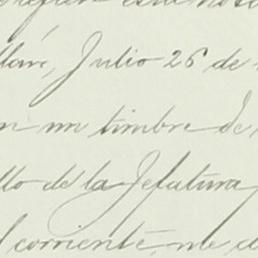 refier
Julio 26 de
un timbre de
llo de la Jefatura
corriente, me